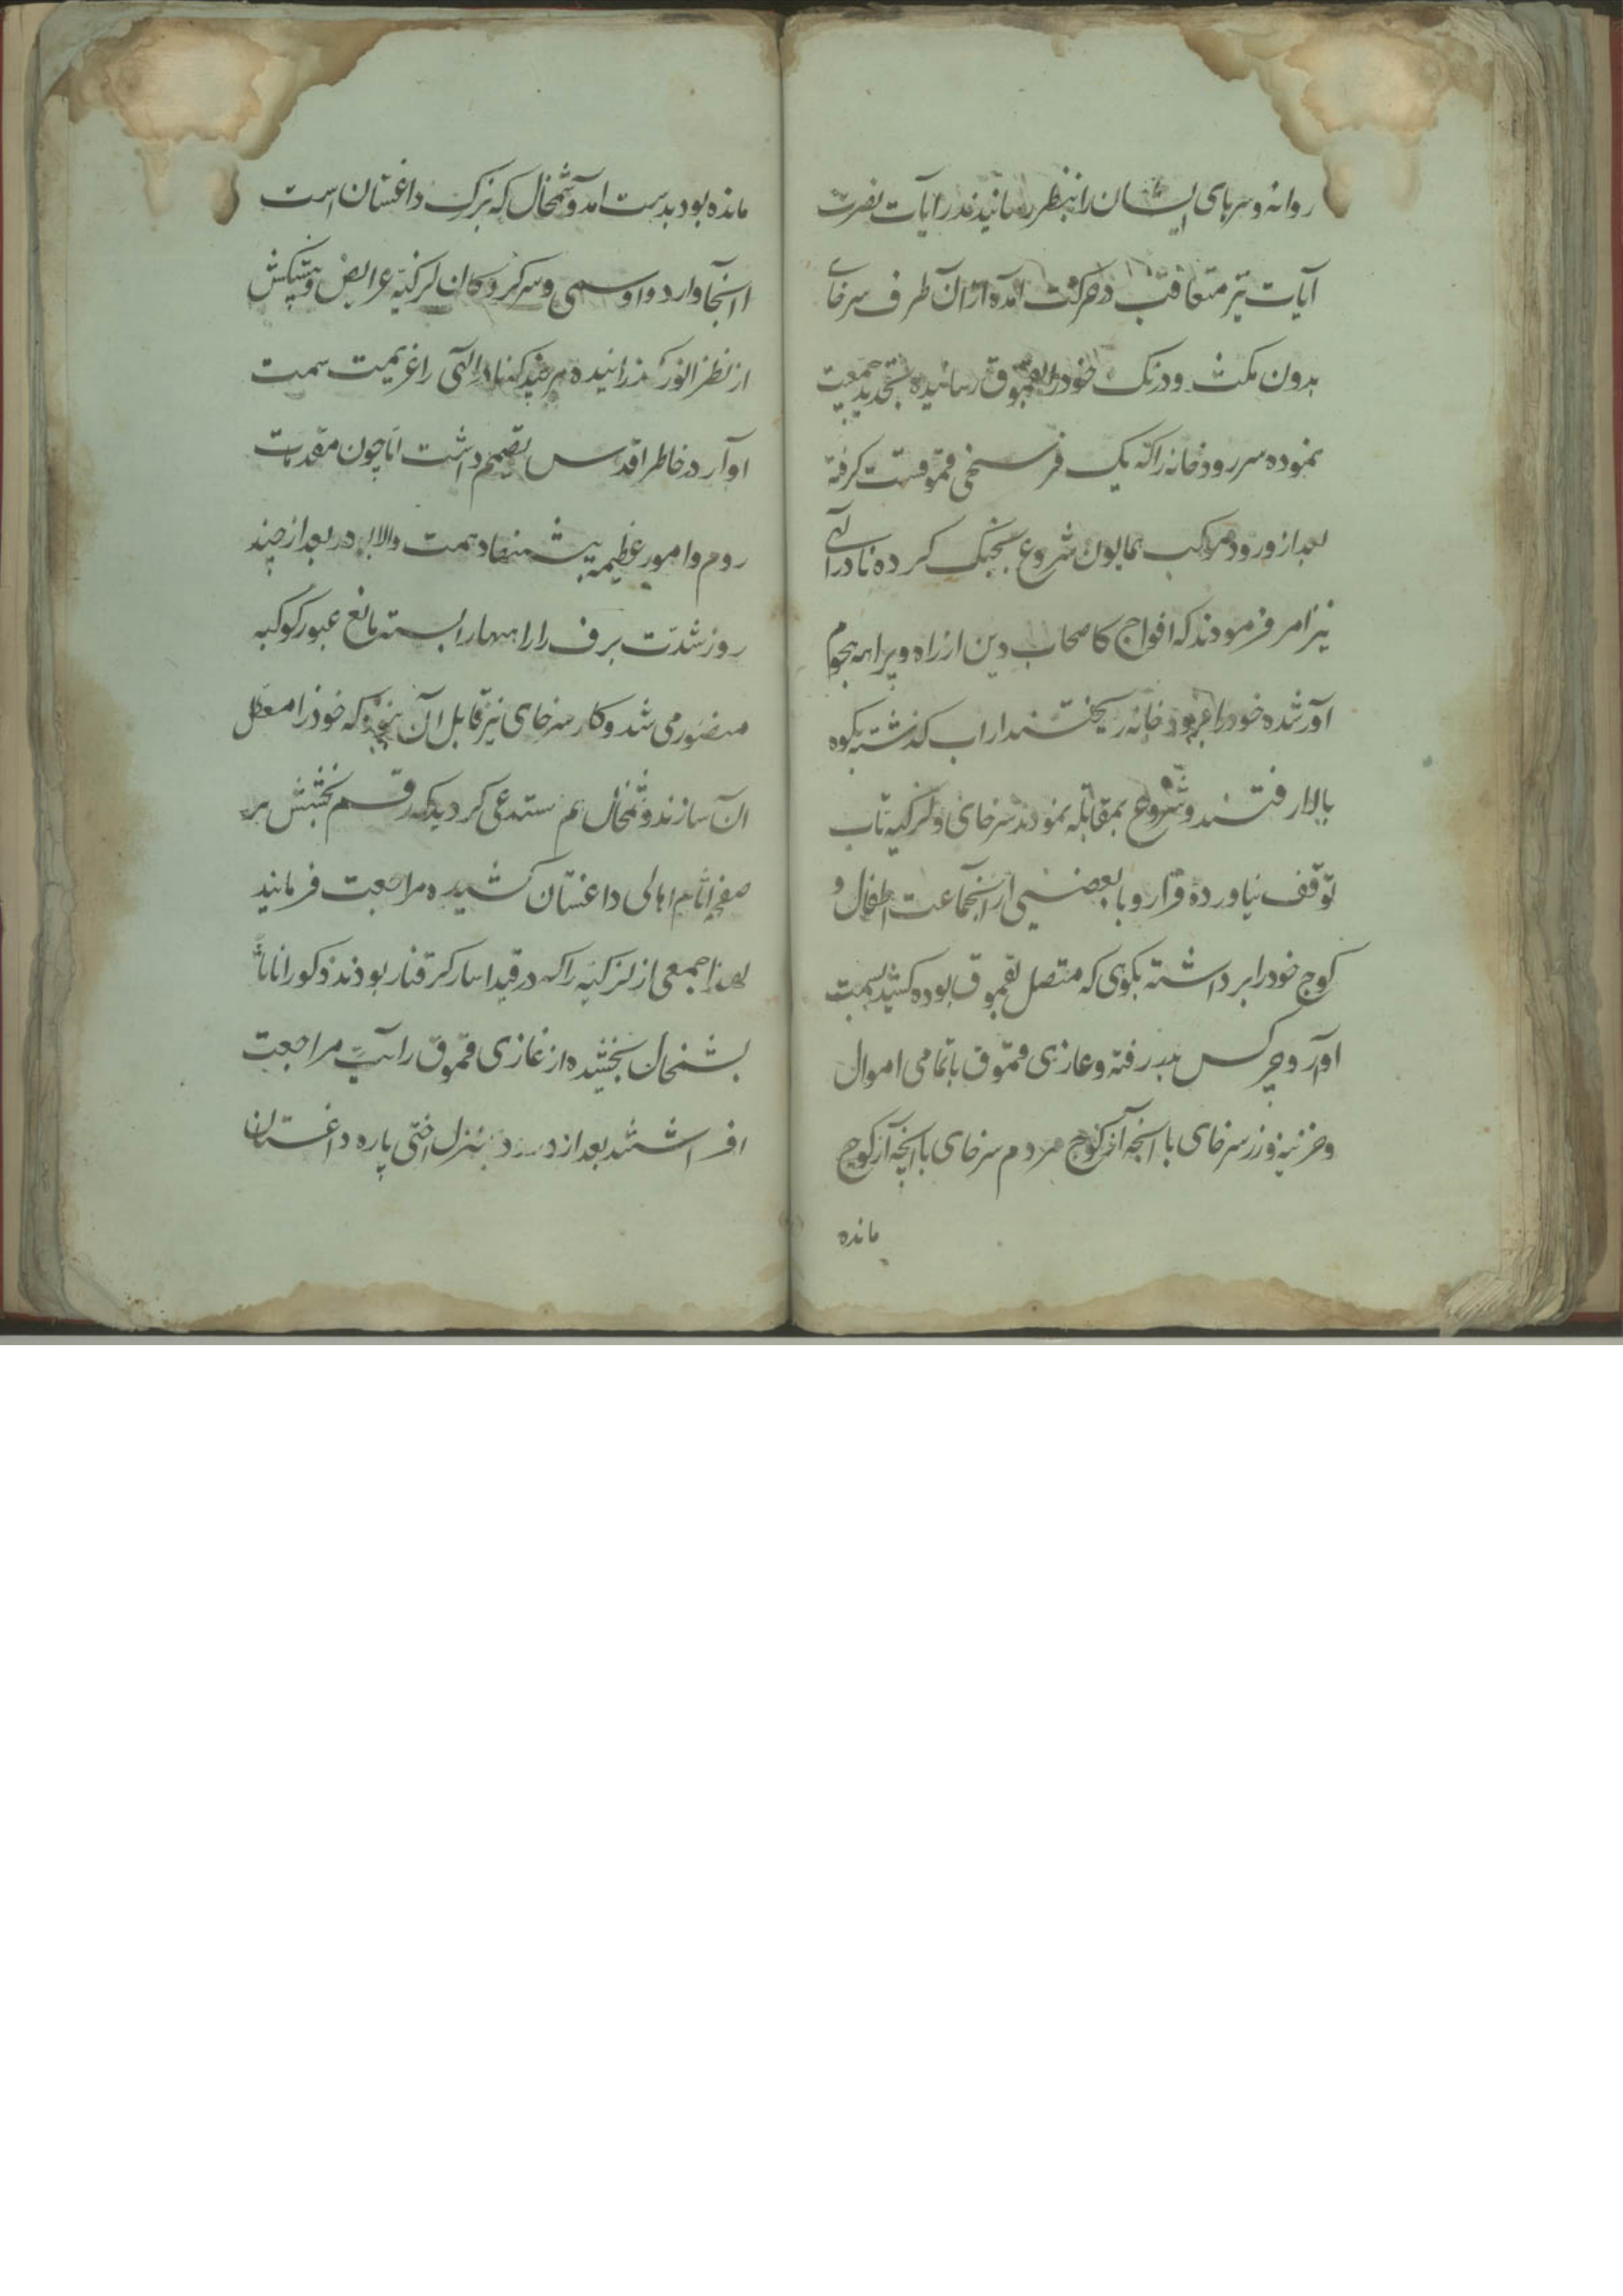 روانه و سرهای ایشان را بنظر رسانیدند رایات نصرت
آیات نیز متعاقب در حرکت آمده از آن طرف سرخای
بدون مکث و درنک خود را بقموق رسانیده تجدید جمعیت
نموده سر رودخانه را که یک فرسخی قموقست کرفته
بعد از ورود موکب همایون شروع بجنک کرده نادر آلهی
نیز امر فرمودند که افواج کاصحاب دین از راه و براهه هجوم
آور شده خود را برودخانه ریختند از اب کذشته بکوه
بالا رفتند و شروع بمقابله نمودند سرخای و لزکیه تاب
توقف نیاورده فرار و با بعضی از آنجماعت اطفال و
کوچ خود را برداشته بکوی که متصل بقموق بوده کشید بسمت
اوآر و چرکس بدر رفته و غازی قموق با تمامی اموال
و خزنیه و زر سرخای با آنچه از کوچ مردم سرخای با آنچه از کوچ
مانده
مانده بود بدست امد و شمخال که بزرک داغستان است
انجا وارد و اوسمی و سرکردکان لزکیه عرایض و پیشکش
از نظر انور کذرانیده هر چند که نادر الهی را عزیمت سمت
اوآر در خاطر اقدس تصمیم داشت اما چون مقدمات
روم و امور عظیمه پیشنهاد همت والا بود بعد از چند
روز شدت برف راهها را بسته مانع عبور کوکبه
منصور می شد و کار سرخای نیز قابل آن نبود که خود را معطل
ان سازند و شمخال هم مستدعی کردید که رقم بخشش بر
صفحه اثام اهالی داغستان کشیده مراجعت فرمایند
لهذا جمعی از لزکیه را که در قید اسار کرفتار بودند ذکورا اناثا
بشمخال بخشیده از غازی قموق رایت مراجعت
افراشتند بعد از ورود بمنزل اختی پاره داغستان